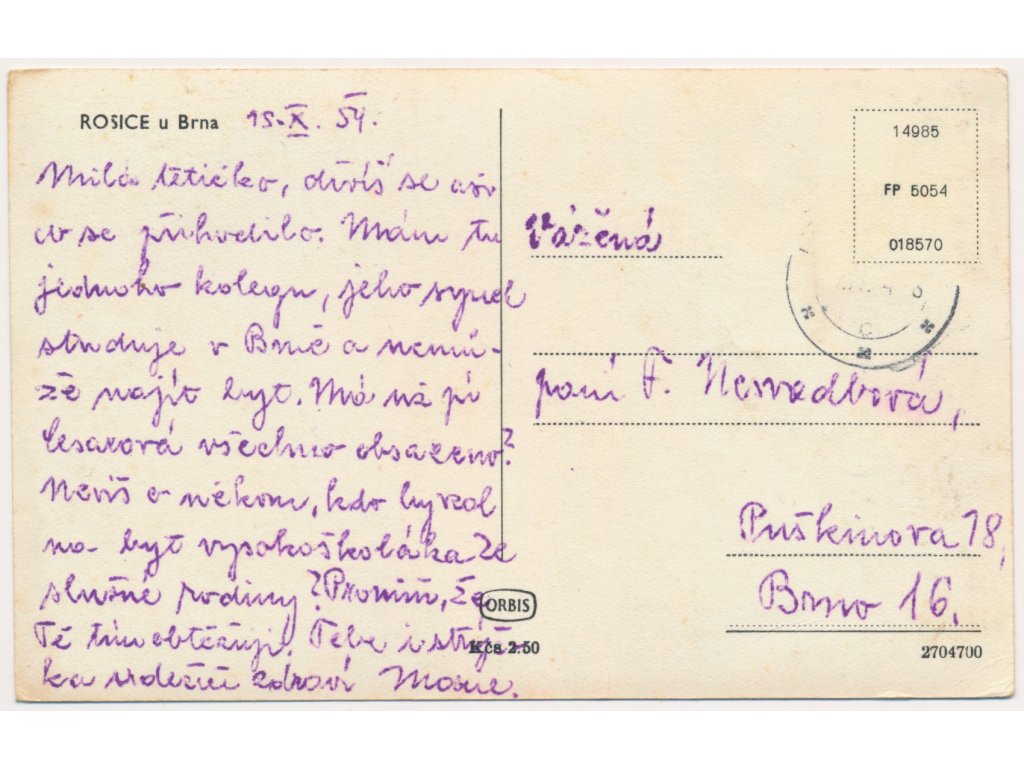 ROSICE u Brna 15.X. 54.
Milá tetičko, divíš se asi
co se přihodilo. Mám tu
jednoho kolegu, jeho syn
studuje v Brně a nemů-
že najít byt. Má už pí
Cesarová všechno obsazeno?
Nevíš o někom, kdo by vzal
na byt vysokoškoláka ze
slušné rodiny? Promiň, že
Tě tím obtěžuji. Tebe i strýč-
ka srdečně zdraví
14985
FP 5054
018570
C
Vážená
paní F. Nesvadbová,
Puškinova 18,
Brno 16.
ORBIS
Kčs 2.50
2704700